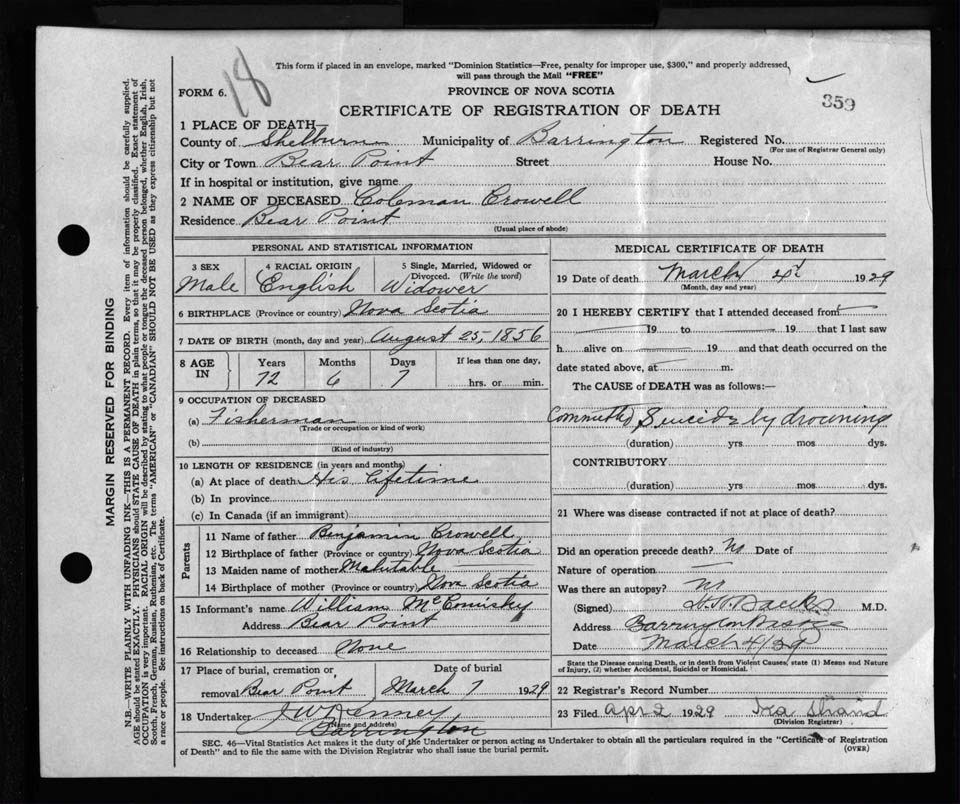 This form if placed in an envelope, marked "Dominion Statistics—Free, penalty for improper use, $300," and properly addressed,
will pass through the Mail "FREE"
18
FORM 6.
PROVINCE OF NOVA SCOTIA
359
CERTIFICATE OF REGISTRATION OF DEATH
1 PLACE OF DEATH—
County of Shelburne Municipality of Barrington Registered No.
(For use of Registrar General only)
City or Town Bear Point Street House No.
If in hospital or institution, give name
2 NAME OF DECEASED Coleman Crowell
Residence Bear Point
(Usual place of abode)
PERSONAL AND STATISTICAL INFORMATION
3 SEX 4 RACIAL ORIGIN 5 Single, Married, Widowed or Divorced. (Write the word)
Male English Widower
6 BIRTHPLACE (Province or country) Nova Scotia
7 DATE OF BIRTH (month, day and year) August 25, 1856
8 AGE IN Years Months Days If less than one day,
72 6 7 hrs. or min.
9 OCCUPATION OF DECEASED
(a) Fisherman
(Trade or occupation or kind of work)
(b)
(Kind of industry)
10 LENGTH OF RESIDENCE (in years and months)
(a) At place of death His lifetime
(b) In province
(c) In Canada (if an immigrant)
Parents
11 Name of father Benjamin Crowell
12 Birthplace of father (Province or country) Nova Scotia
13 Maiden name of mother
14 Birthplace of mother (Province or country) Nova Scotia
15 Informant's name William McComisky
Address Bear Point
16 Relationship to deceased None
17 Place of burial, cremation or Date of burial
removal Bear Point March 7 1929
18 Undertaker J W Kenney
(Name and address)
Barrington
MEDICAL CERTIFICATE OF DEATH
19 Date of death March 1929
(Month, day and year)
20 I HEREBY CERTIFY that I attended deceased from
19 to 19 that I last saw
h alive on 19 and that death occurred on the
date stated above, at m.
The CAUSE of DEATH was as follows:—
Committed Suicide by drowning
(duration) yrs mos dys.
CONTRIBUTORY
(duration) yrs mos dys.
21 Where was disease contracted if not at place of death?
Did an operation precede death? Date of
Nature of operation
Was there an autopsy?
(Signed) Banks M.D.
Address Barrington
Date March 4/29
State the Disease causing Death, or in death from Violent Causes, state (1) Means and Nature
of Injury, (2) whether Accidental, Suicidal or Homicidal.
22 Registrar's Record Number
23 Filed Apr 2 1929 Ira
(Division Registrar)
SEC. 46—Vital Statistics Act makes it the duty of the Undertaker or person acting as Undertaker to obtain all the particulars required in the "Certificate of Registration
of Death" and to file the same with the Division Registrar who shall issue the burial permit. (OVER)
MARGIN RESERVED FOR BINDING
N.B.—WRITE PLAINLY WITH UNFADING INK—THIS IS A PERMANENT RECORD. Every item of information should be carefully supplied.
AGE should be stated EXACTLY. PHYSICIANS should STATE CAUSE OF DEATH in plain terms, so that it may be properly classified. Exact statement of
OCCUPATION is very important. RACIAL ORIGIN will be described by stating to what people or tongue the deceased person belonged, whether English, Irish,
Scotch, French, German, Russian, Ruthenian, etc. The terms "AMERICAN" or "CANADIAN" SHOULD NOT BE USED as they express citizenship but not
a race or people. See instructions on back of Certificate.